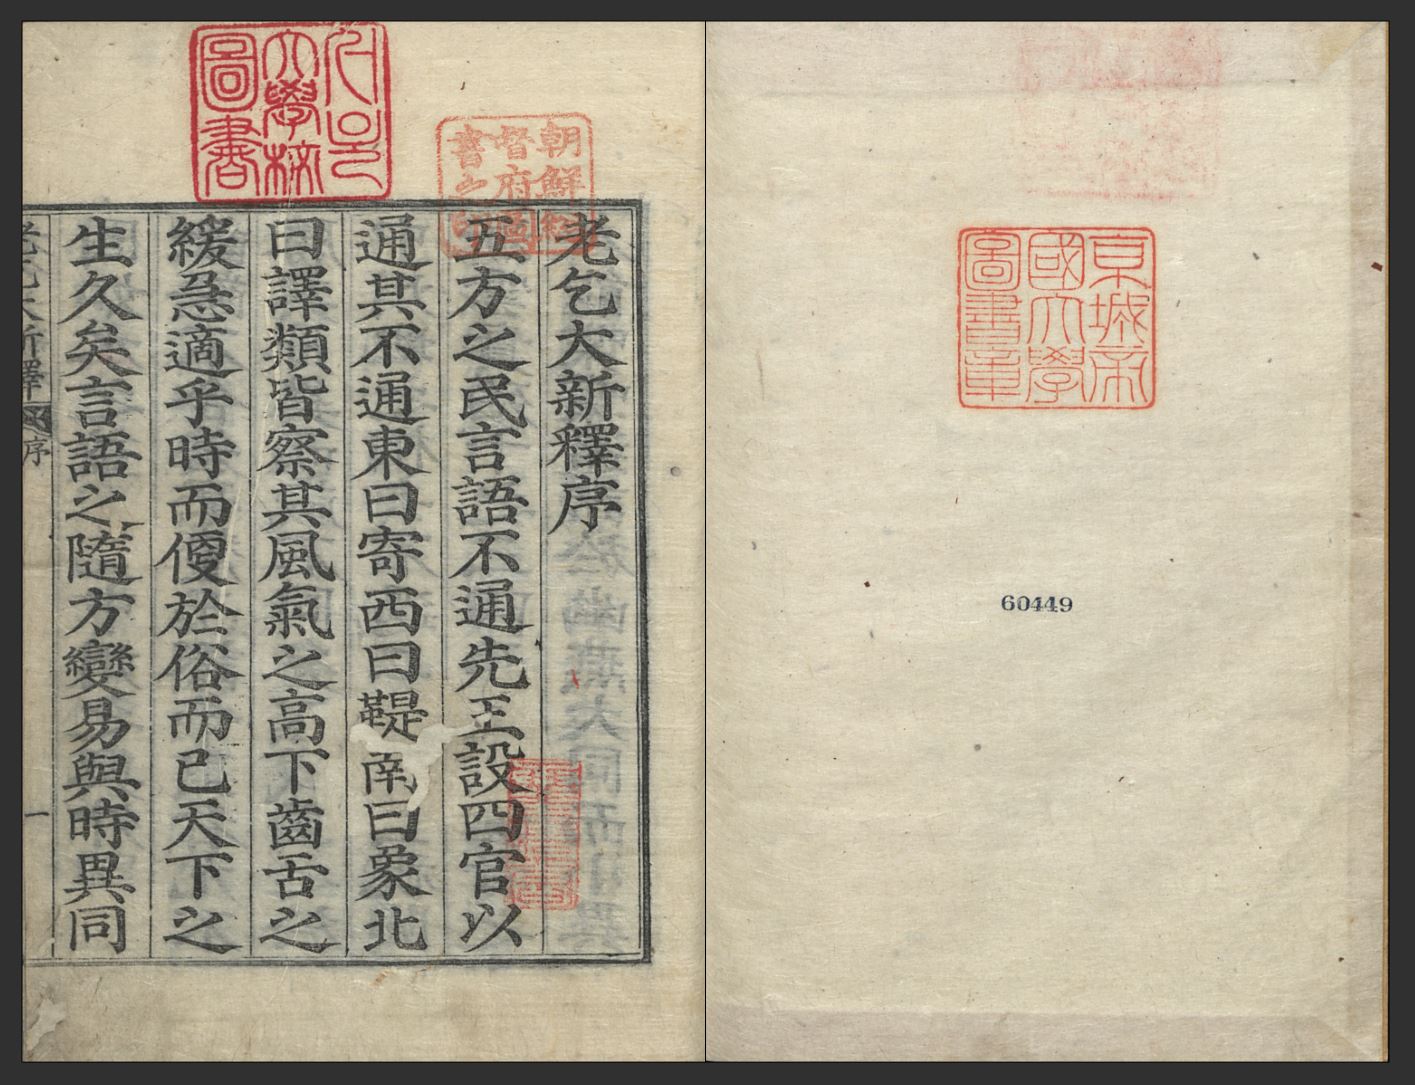 京城帝
國大學
圖書章
60449
朝鮮總
督府圖
書之印
서울
大學校
圖書
老乞大新釋序
五方之民言語不通先王設四官以
通其不通東曰寄西曰鞮南曰象北
曰譯類皆察其風氣之高下齒舌之
緩急適乎時而便於俗而已天下之
生久矣言語之隨方變易與時異同
老乞大新釋
序
一